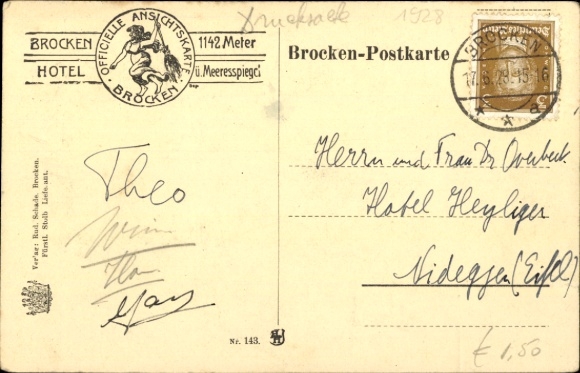 Drucksache 1928
OFFICIELLE ANSICHTSKARTE
BROCKEN
BROCKEN
HOTEL
1142 Meter
ü. Meeresspiegel
Brocken-Postkarte
BROCKEN
17.6.28.15-16
a
Herrn und Frau Dr Overbeck
Hotel Heyliger
Nideggen (Eifel)
Theo
Wim
Verlag: Rud. Schade, Brocken.
Fürstl. Stolb. Lieferant.
Nr. 143.
€ 1,50